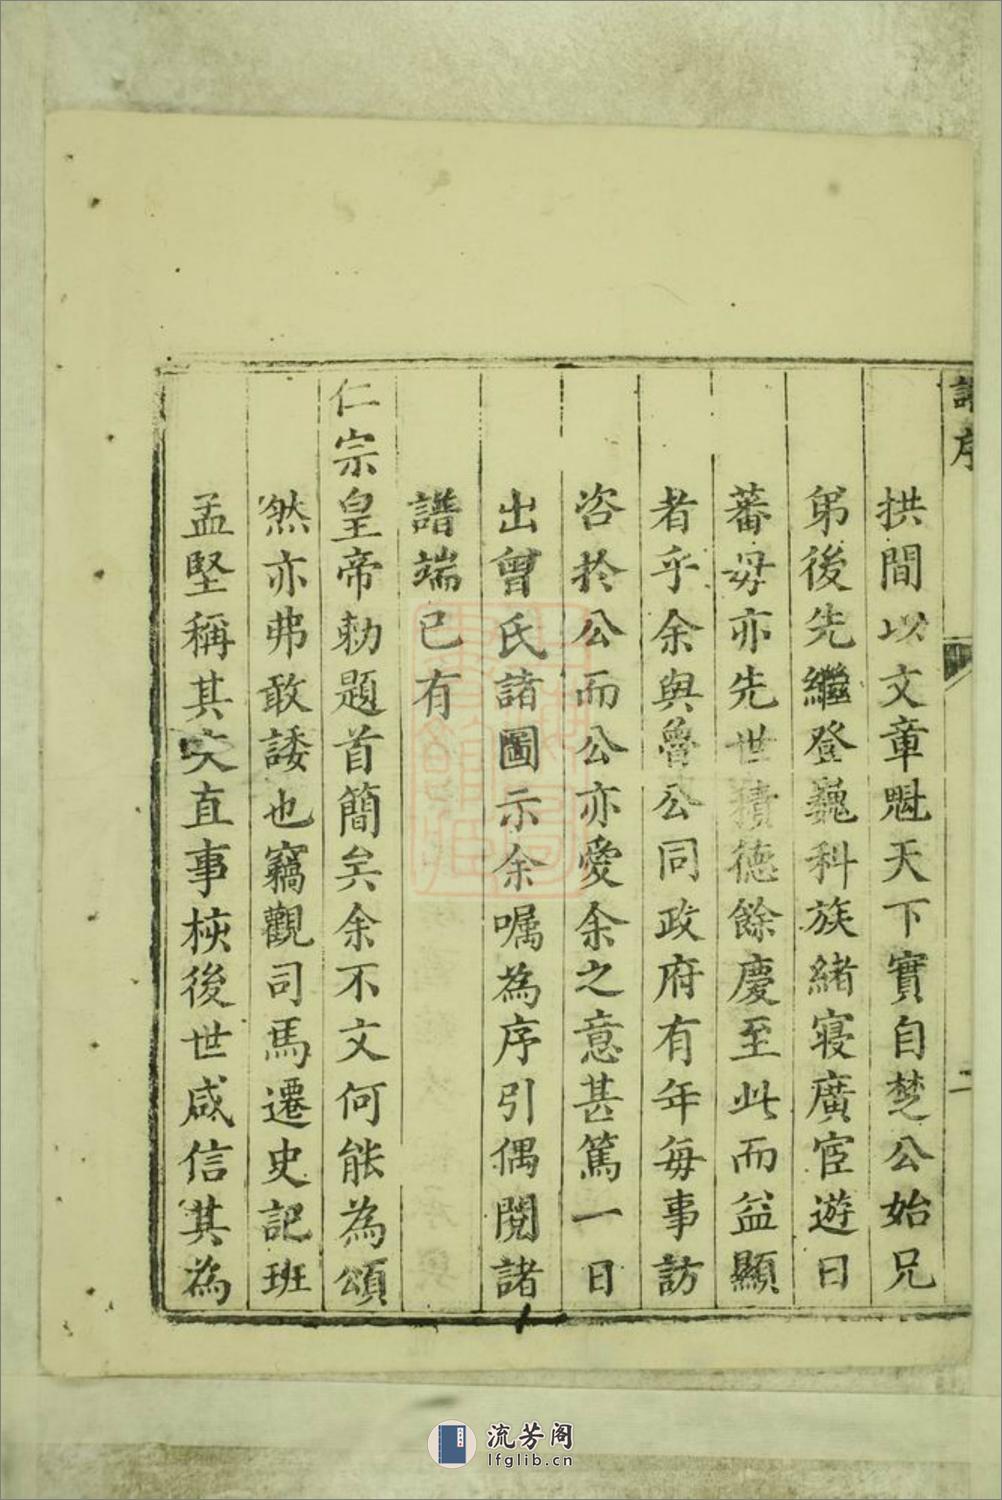 譜序
二
拱間以文章魁天下實自楚公始兄
弟後先繼登巍科族緒寖廣宦遊日
蕃毋亦先世積德餘慶至此而益顯
者乎余與魯公同政府有年每事訪
咨於公而公亦愛余之意甚篤一日
出曾氏諸圖示余囑為序引偶閱諸
譜端已有
仁宗皇帝勅題首簡矣余不文何能為頌
然亦弗敢諉也竊觀司馬遷史記班
孟堅稱其文直事核後世咸信其為
流芳阁
lfglib.cn